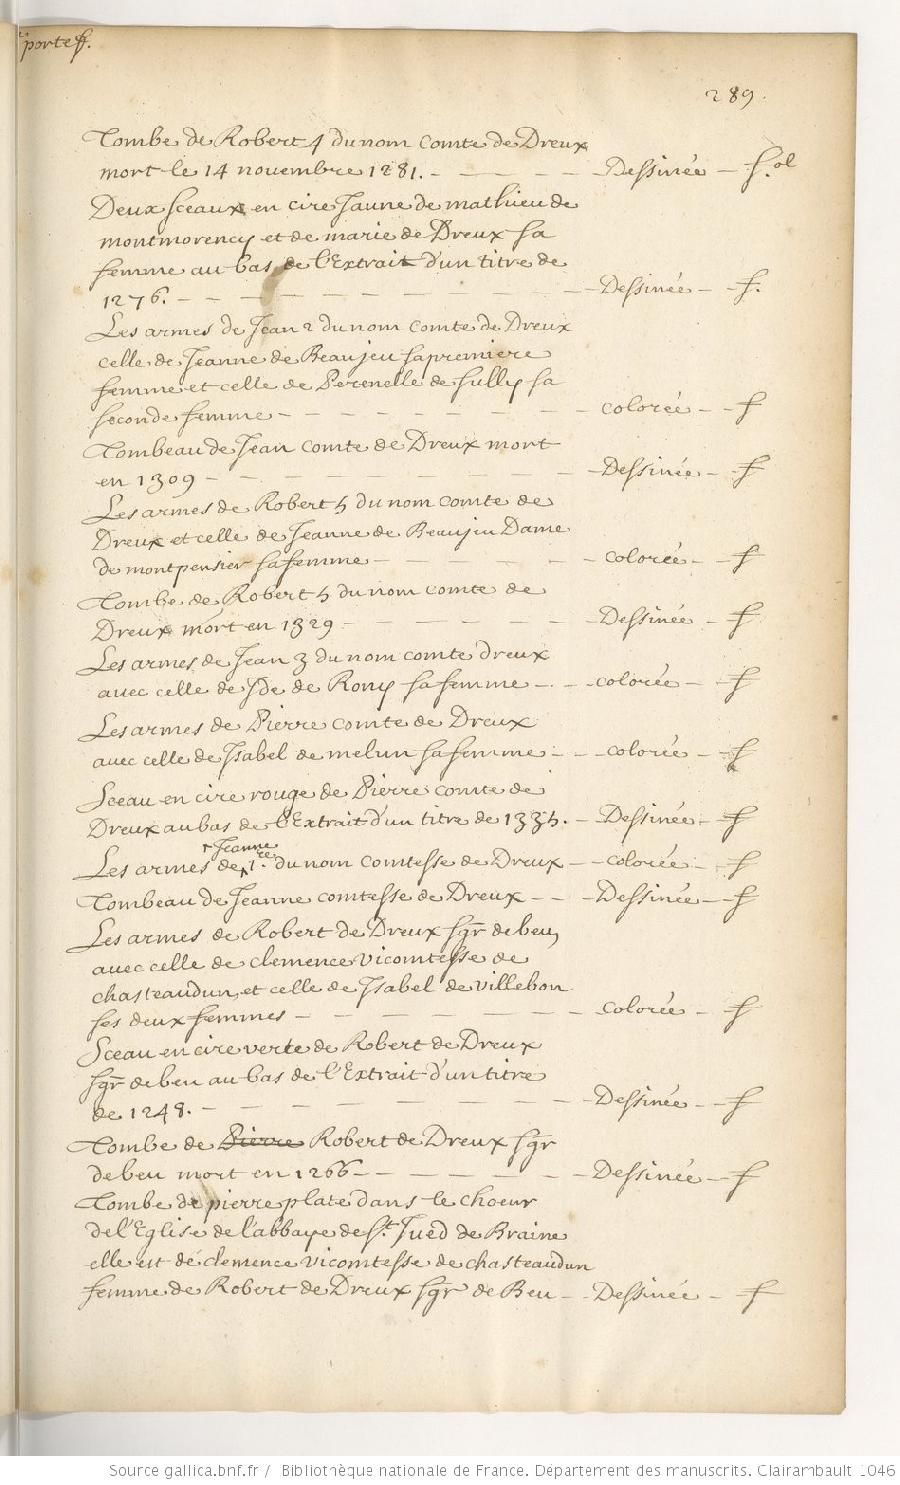 portef.
289.
Tombe de Robert 4 du nom comte de Dreux
mort le 14 novembre 1281. - - - - - Dessinée - f.ol
Deux sceaux en cire Jaune de mathieu de
montmorency et de marie de Dreux sa
femme au bas de l'Extrait d'un titre de
1276. - - - - - - - Dessinée - f.
Les armes de Jean 2 du nom comte de Dreux
celle de Jeanne de Beaujeu sa premiere
femme et celle de Perenelle de sully sa
seconde femme - - - - - - - colorée - f
Tombeau de Jean comte de Dreux mort
en 1309 - - - - - - - Dessinée - f
Les armes de Robert 5 du nom comte de
Dreux et celle de Jeanne de Beaujeu Dame
de montpensier sa femme - - - - - colorée - f
Tombe de Robert 5 du nom comte de
Dreux mort en 1329 - - - - - Dessinée - f
Les armes de Jean 3 du nom comte dreux
avec celle de Ide de Rony sa femme - - colorée - f
Les armes de Pierre comte de Dreux
avec celle de Isabel de melun sa femme - - colorée - f
Sceau en cire rouge de Pierre comte de
Dreux au bas de l'Extrait d'un titre de 1335. - Dessinée - f
Jeanne
Les armes de 1.re du nom comtesse de Dreux - - colorée - f
Tombeau de Jeanne comtesse de Dreux - - Dessinée - f
Les armes de Robert de Dreux sgr de beu,
avec celle de clemence vicomtesse de
chasteaudun, et celle de Isabel de villebon
ses deux femmes - - - - - - colorée - f
Sceau en cire verte de Robert de Dreux
sgr de beu au bas de l'Extrait d'un titre
de 1248. - - - - - - Dessinée - f
Tombe de Pierre Robert de Dreux sgr
de beu mort en 1266 - - - - - Dessinée - f
Tombe de pierre plate dans le choeur
de l'Eglise de l'abbaye de St. Jued de Braine
elle est de clemence vicomtesse de chasteaudun
femme de Robert de Dreux sgr de Beu - Dessinée - f
Source gallica.bnf.fr / Bibliothèque nationale de France. Département des manuscrits. Clairambault 1046